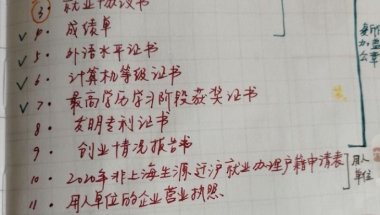 ③ 就业协议书
✓ 4. 成绩单
✓ 5. 外语水平证书
✓ 6. 计算机等级证书
✓ 7. 最高学历学习阶段获奖证书
8. 发明专利证书
9. 创业情况报告书
10. 2020年非上海生源进沪就业办理户籍申请表
11. 用人单位的企业营业执照
用人
单位